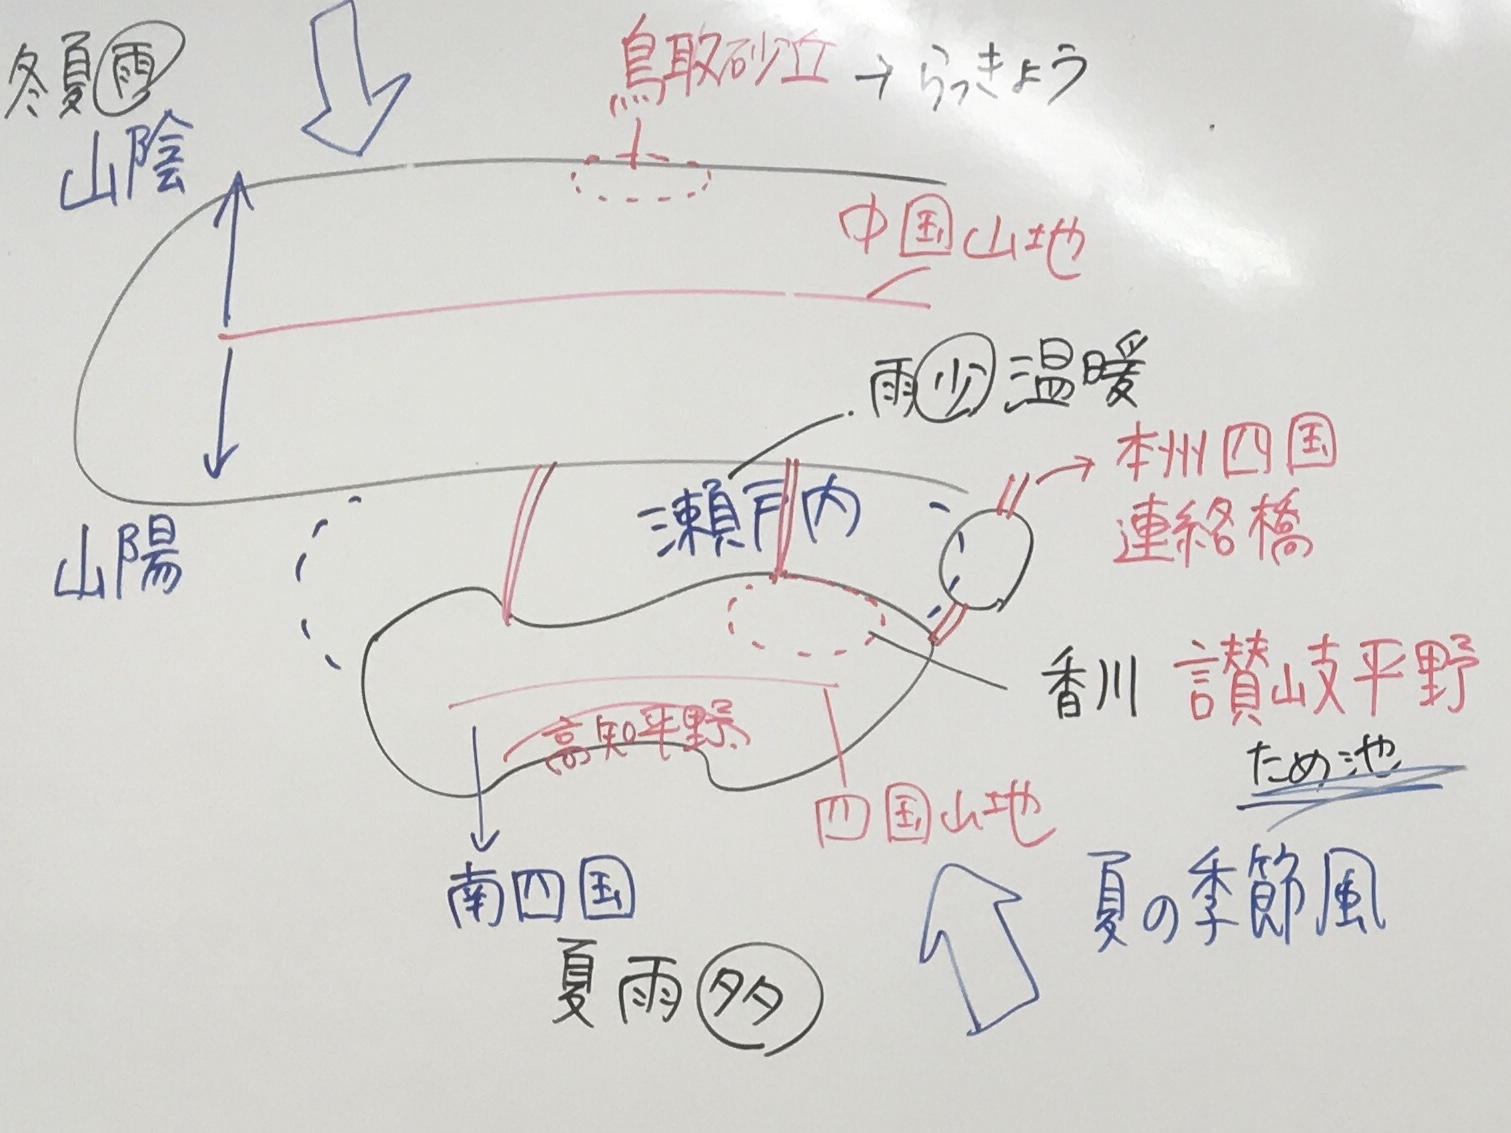 冬夏雨
鳥取砂丘→らっきょう
山陰
中国山地
雨少温暖
本州四国
連絡橋
瀬戸内
山陽
香川 讃岐平野
ため池
高知平野
四国山地
南四国
夏の季節風
夏雨多